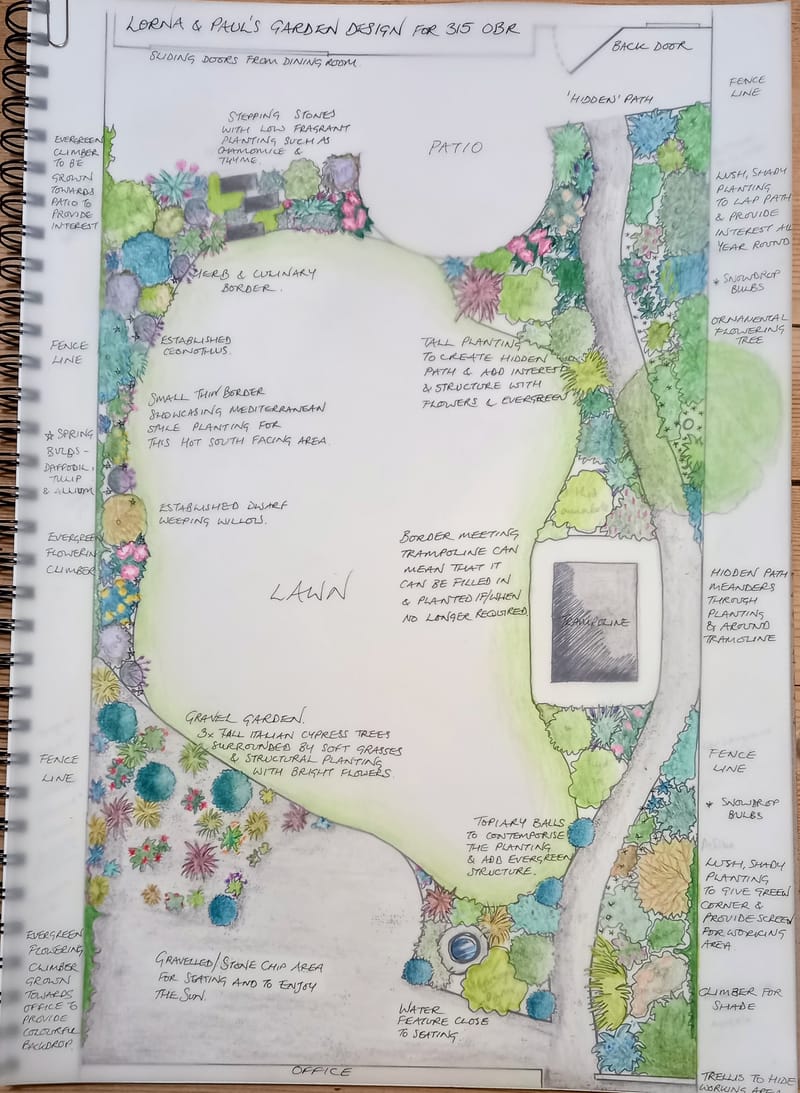 LORNA & PAUL'S GARDEN DESIGN FOR 315 OBR
SLIDING DOORS FROM DINING ROOM
BACK DOOR
'HIDDEN' PATH
FENCE
LINE
STEPPING STONES
WITH LOW FRAGRANT
PLANTING SUCH AS
CHAMOMILE &
THYME.
PATIO
EVERGREEN
CLIMBER
TO BE
GROWN
TOWARDS
PATIO TO
PROVIDE
INTEREST
LUSH, SHADY
PLANTING
TO LAP PATH
& PROVIDE
INTEREST ALL
YEAR ROUND
* SNOWDROP
BULBS
HERB & CULINARY
BORDER.
ORNAMENTAL
FLOWERING
TREE
FENCE
LINE
ESTABLISHED
CEONOTHUS.
TALL PLANTING
TO CREATE HIDDEN
PATH & ADD INTEREST
& STRUCTURE WITH
FLOWERS & EVERGREEN
SMALL THIN BORDER
SHOWCASING MEDITERRANEAN
STYLE PLANTING FOR
THIS HOT SOUTH FACING AREA
☆ SPRING
BULBS -
DAFFODIL,
TULIP
& ALLIUM
ESTABLISHED DWARF
WEEPING WILLOW.
EVERGREEN
FLOWERING
CLIMBER
BORDER MEETING
TRAMPOLINE CAN
MEAN THAT IT
CAN BE FILLED IN
& PLANTED IF/WHEN
NO LONGER REQUIRED
LAWN
TRAMPOLINE
HIDDEN PATH
MEANDERS
THROUGH
PLANTING
& AROUND
TRAMOLINE
GRAVEL GARDEN.
3x TALL ITALIAN CYPRESS TREES
SURROUNDED BY SOFT GRASSES
& STRUCTURAL PLANTING
WITH BRIGHT FLOWERS.
FENCE
LINE
FENCE
LINE
* SNOWDROP
BULBS
TOPIARY BALLS
TO CONTEMPORISE
THE PLANTING
& ADD EVERGREEN
STRUCTURE.
LUSH, SHADY
PLANTING
TO GIVE GREEN
CORNER &
PROVIDE SCREEN
FOR WORKING
AREA
EVERGREEN
FLOWERING
CLIMBER
GROWN
TOWARDS
OFFICE TO
PROVIDE
COLOURFUL
BACKDROP.
GRAVELLED/STONE CHIP AREA
FOR SEATING AND TO ENJOY
THE SUN.
WATER
FEATURE CLOSE
TO SEATING.
CLIMBER FOR
SHADE
OFFICE
TRELLIS TO HIDE
WORKING AREA